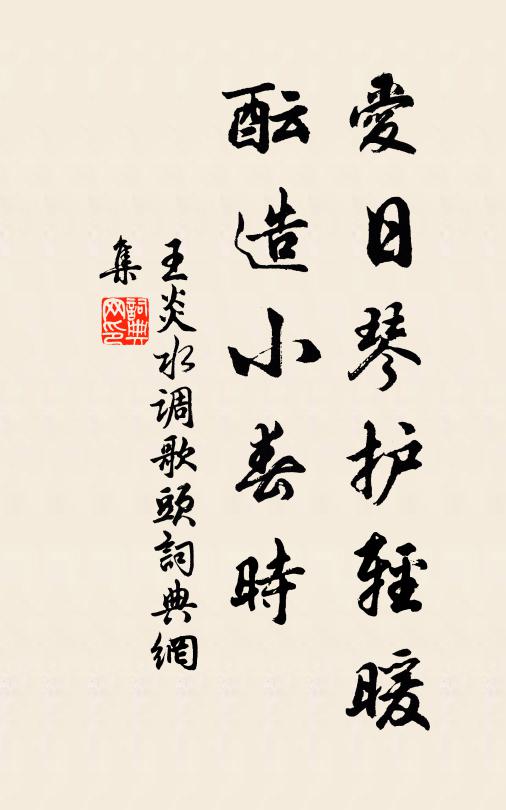 愛日琴护輕暖
醖造小春時
王炎水调歌頭詞典網
集
詞典
网印